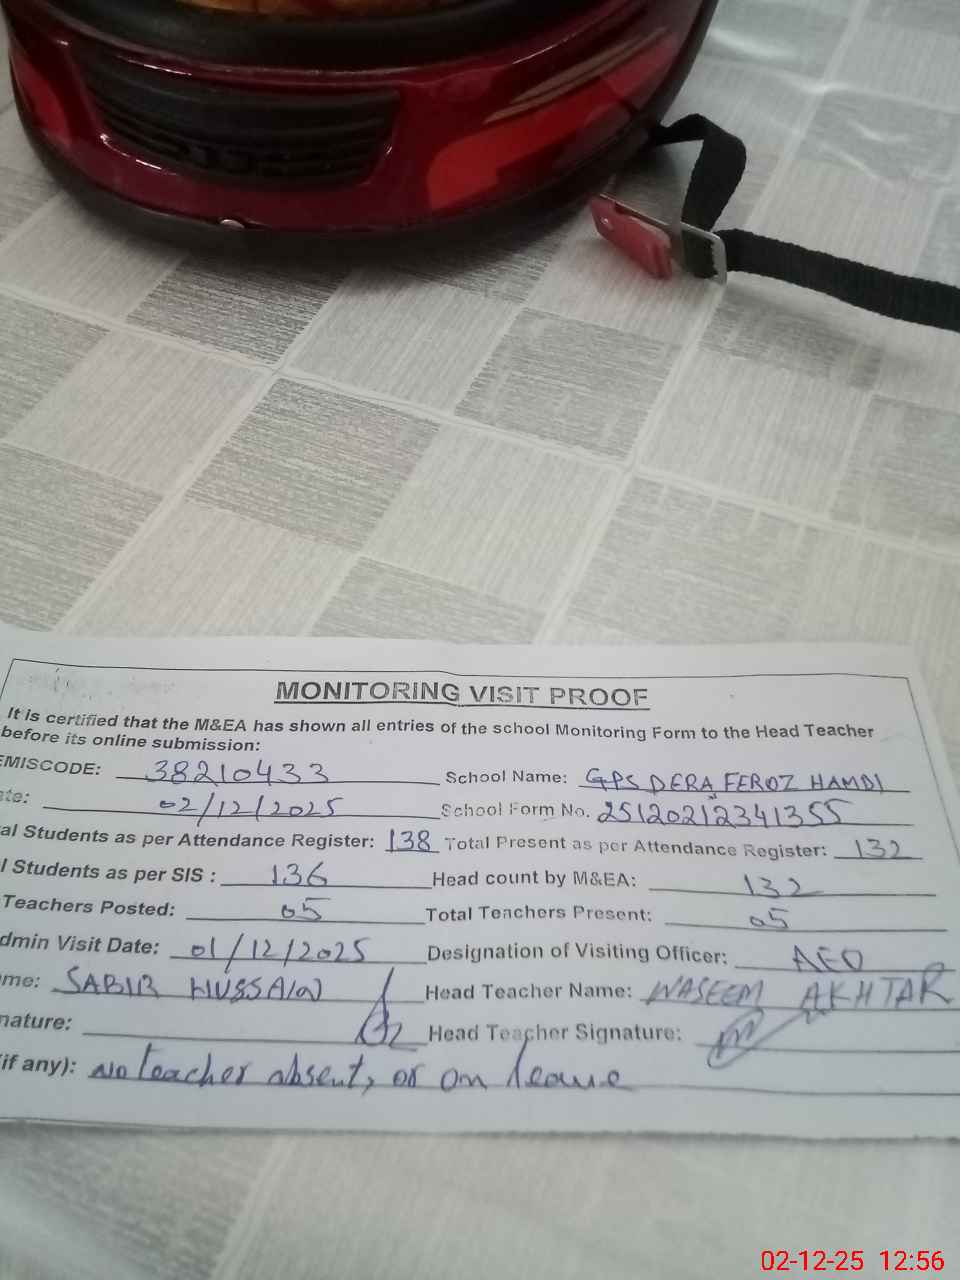 MONITORING VISIT PROOF
It is certified that the M&EA has shown all entries of the school Monitoring Form to the Head Teacher
before its online submission:
EMISCODE: 38210433 School Name: GPS DERA FEROZ HAMDI
ate: 02/12/2025 School Form No. 25120212341355
al Students as per Attendance Register: 138 Total Present as per Attendance Register: 132
l Students as per SIS : 136 Head count by M&EA: 132
Teachers Posted: 05 Total Teachers Present: 05
dmin Visit Date: 01/12/2025 Designation of Visiting Officer: AEO
me: SABIR HUSSAIN Head Teacher Name: WASEEM AKHTAR
nature: Head Teacher Signature:
if any): No teacher absent, or on leave
02-12-25 12:56